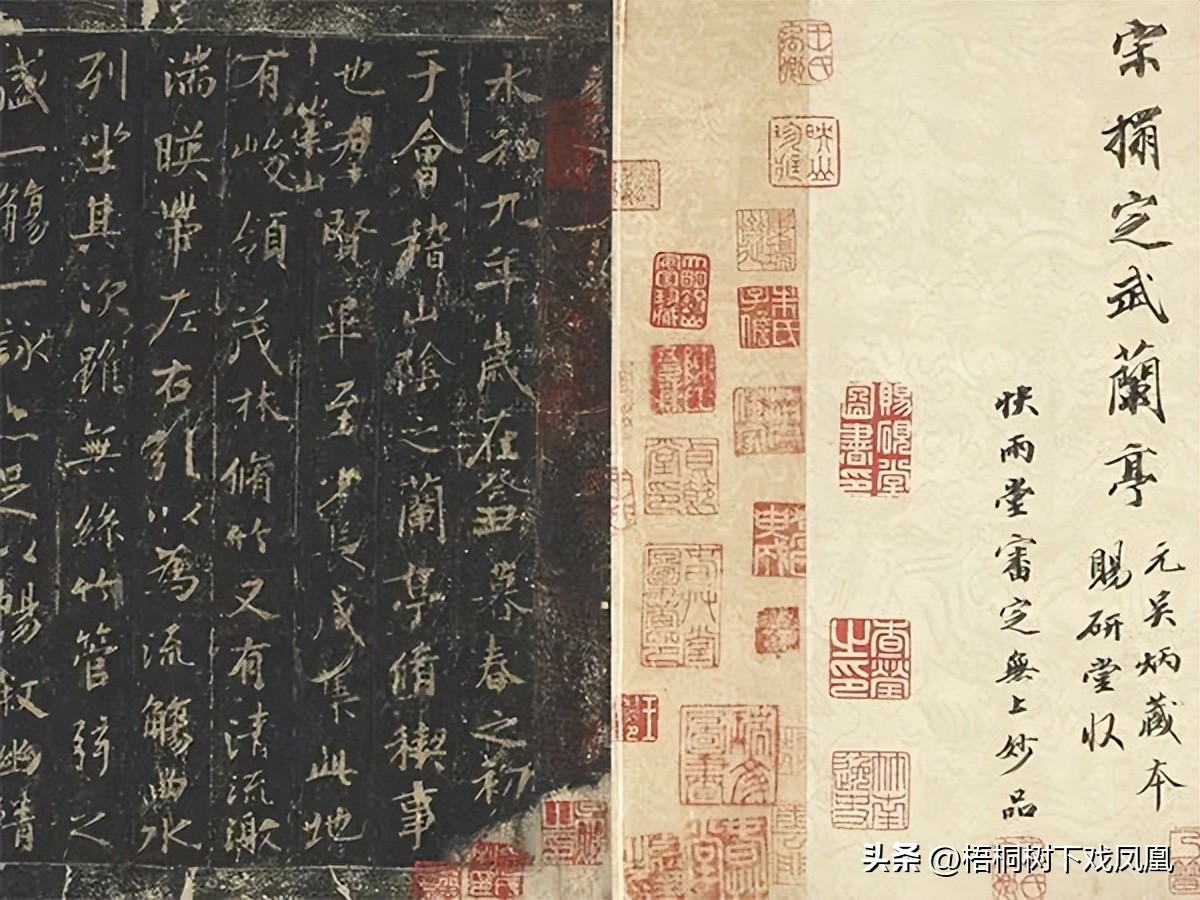 宋搨定武蘭亭
元吳炳藏本
賜研堂收
快雨堂審定無上妙品
賜硯堂圖書印
查瑩之印
映山珍藏
王氏禹卿
朱氏子儋
永和九年歲在癸丑暮春之初
于會稽山陰之蘭亭脩稧事
也羣賢畢至少長咸集此地
有崇山峻領茂林脩竹又有清流激
湍暎帶左右引以為流觴曲水
列坐其次雖無絲竹管弦之
盛一觴一詠亦足以暢叙幽情
头条 @梧桐树下戏凤凰